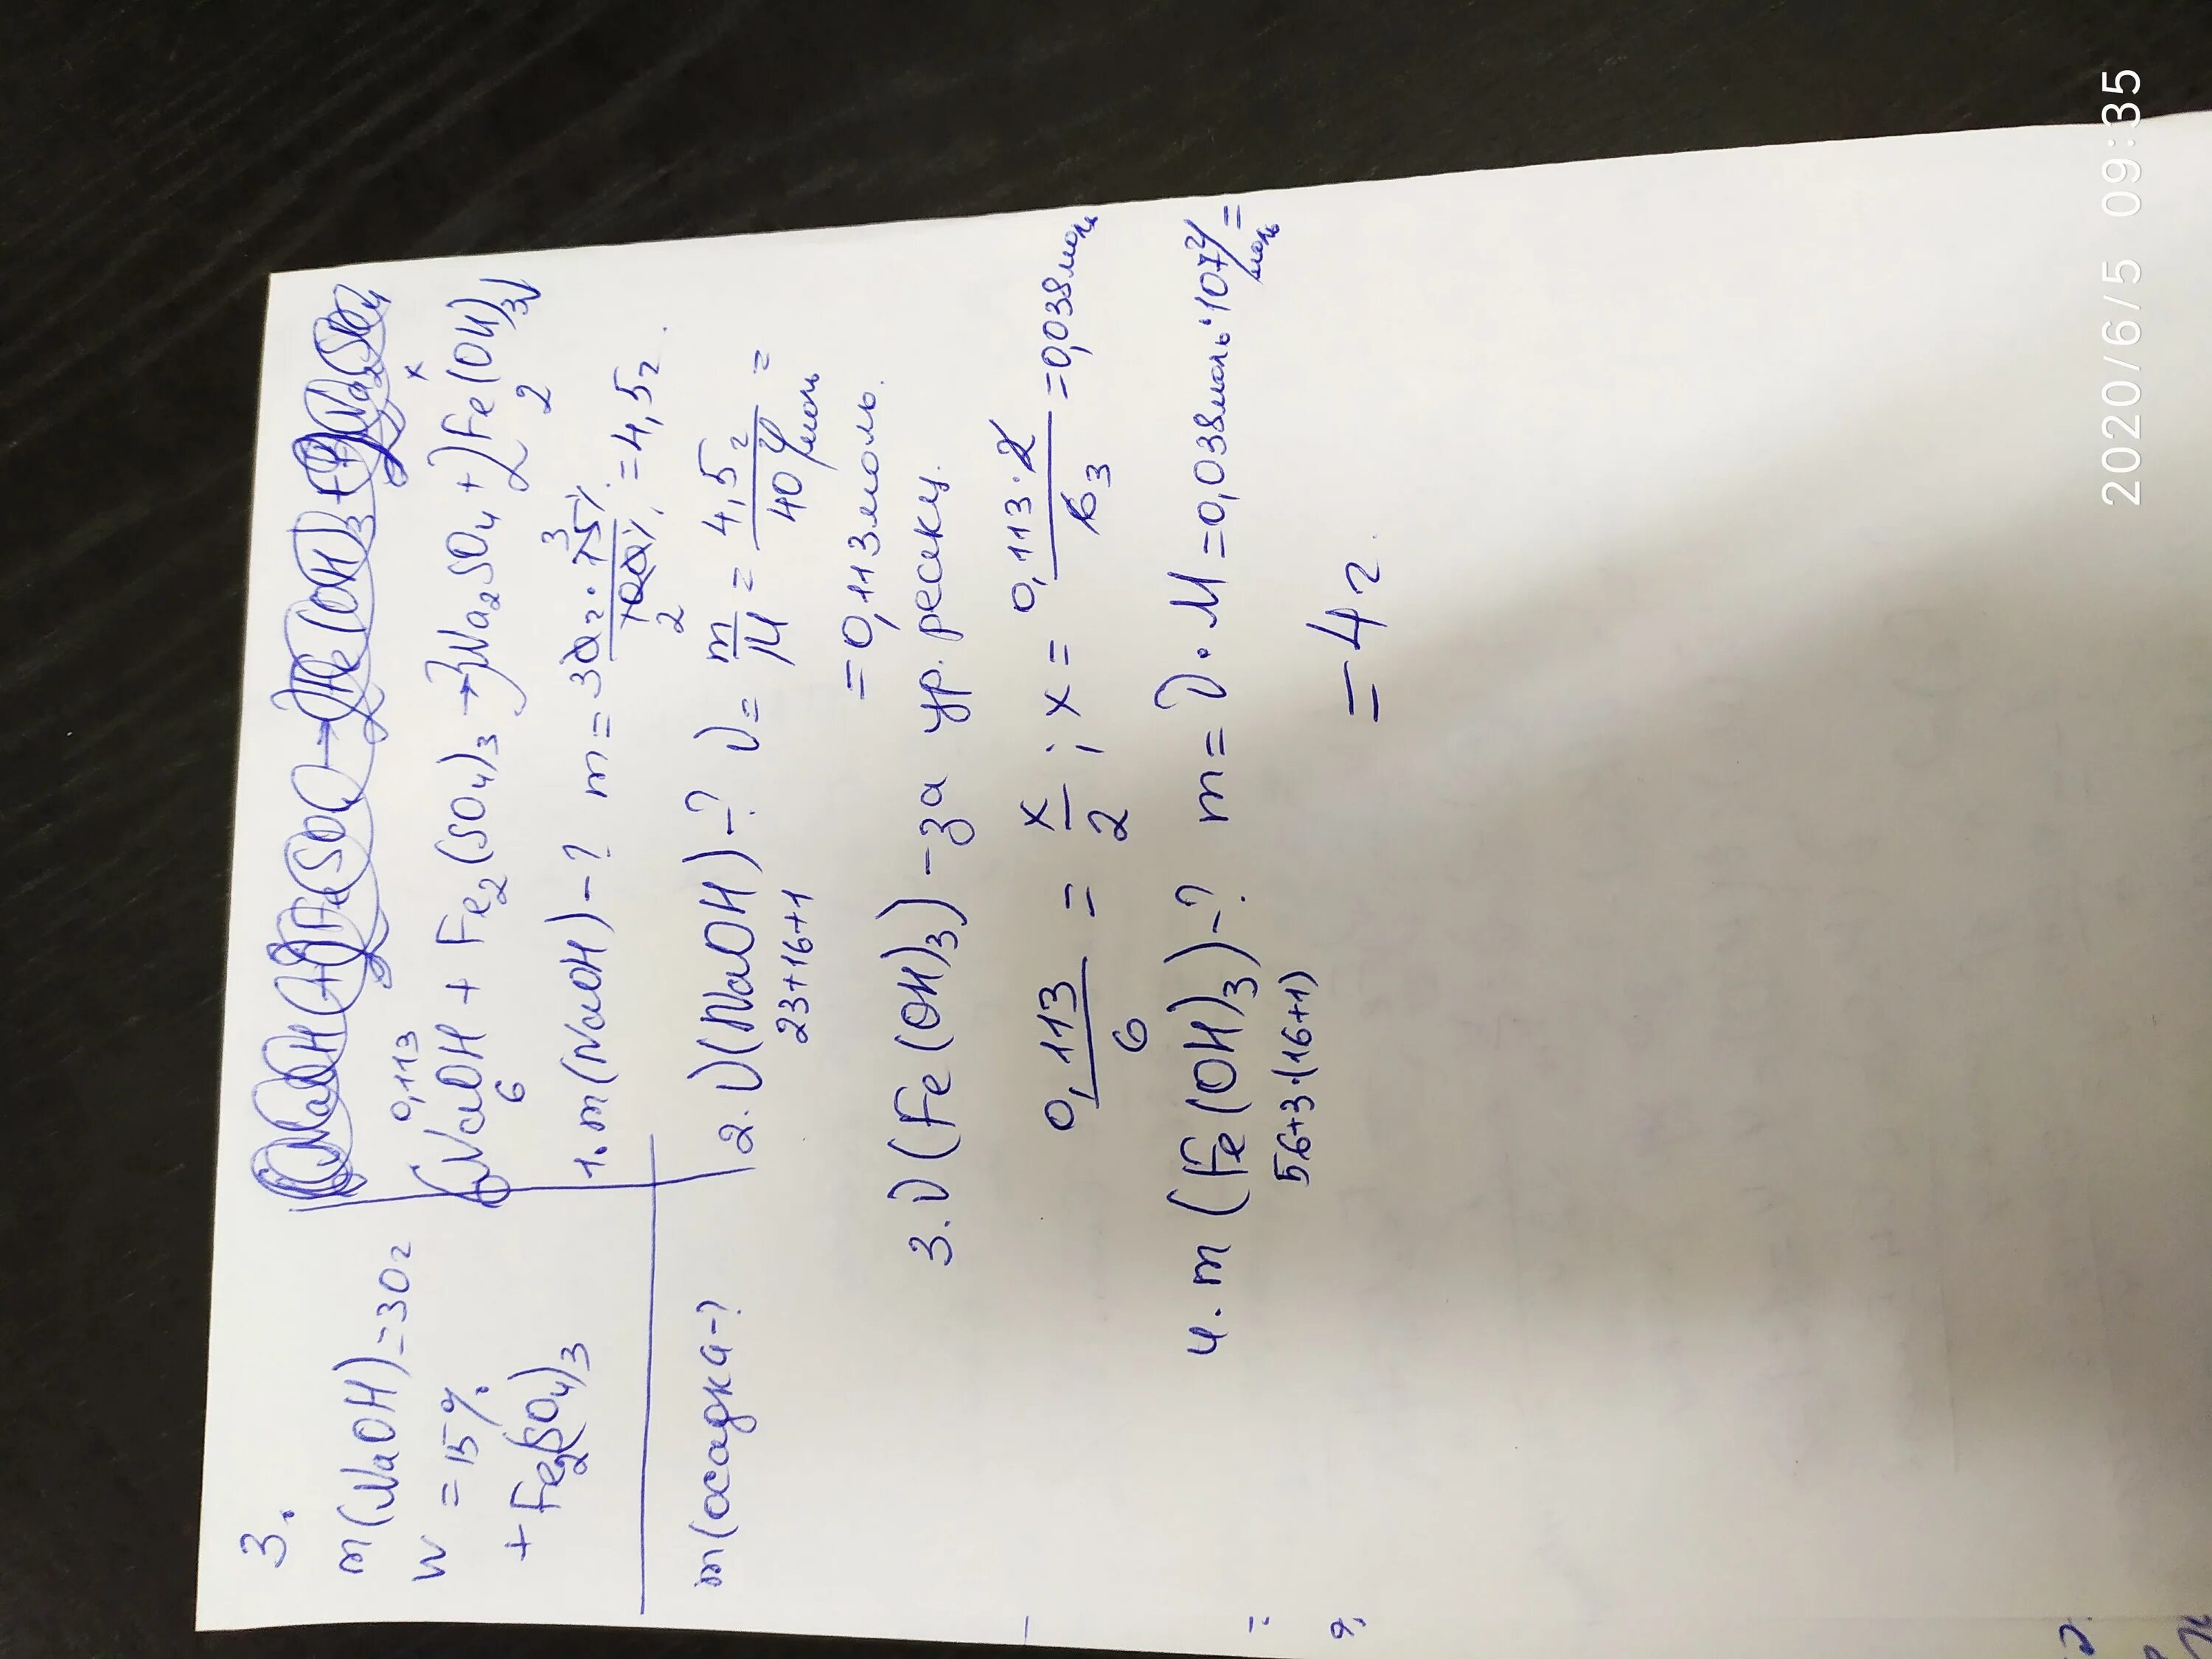 3.
m(NaOH)=30г
W = 15%
+ Fe2(SO4)3
m(осадка-?
0,113 x
6NaOH + Fe2(SO4)3 → 3Na2SO4 + 2Fe(OH)3↓
6 2
1. m(NaOH)-? m = 30г · 15% / 100% = 4,5г.
3
2
2. ν(NaOH)-? ν = m/M = 4,5г / 40 г/моль =
23+16+1
= 0,113моль.
3. ν(Fe(OH)3) - за ур. реакц.
0,113/6 = x/2 ; x = 0,113·2 / 6 3 = 0,038моль
4. m(Fe(OH)3)-? m = ν · M = 0,038моль·107 г/моль =
56+3·(16+1)
= 4г.
2020/6/5 09:35